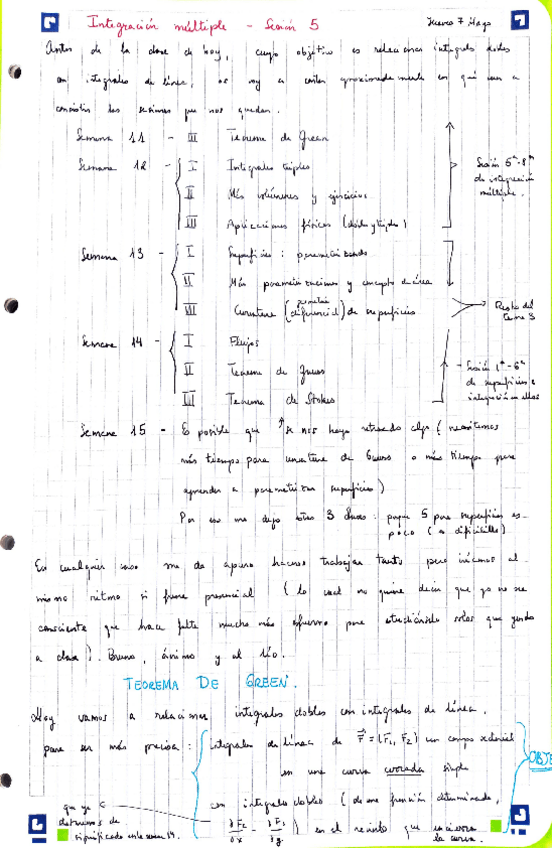 Integración múltiple - Sesión 5
Jueves 7 Mayo
Antes de la clase de hoy, cuyo objetivo es relacionar integrales dobles
con integrales de línea, os voy a contar aproximadamente en qué van a
consistir las sesiones que nos quedan.
Semana 11 - III Teorema de Green
Semana 12 - I Integrales triples
II Más volúmenes y ejercicios
III Aplicaciones físicas (dobles y triples)
Sesión 5ª-8ª
de integración
múltiple.
Semana 13 - I Superficies: parametrizando
II Más parametrizaciones y concepto de área
III Curvatura (geometría diferencial) de superficies
Resto del
tema 3
Semana 14 - I Flujos
II Teorema de Gauss
III Teorema de Stokes
- Sesión 1ª-6ª
de superficies e
integración en ellas
Semana 15 - Es posible que se nos haya retrasado algo (necesitemos
más tiempo para curvatura de Gauss o más tiempo para
aprender a parametrizar superficies)
Por eso me dejo estas 3 clases: porque 5 para superficies es
poco (es dificilillo)
En cualquier caso me da apuro haceros trabajar tanto pero iríamos al
mismo ritmo si fuera presencial (lo cual no quiere decir que yo no sea
consciente que hace falta mucho más esfuerzo para estudiárselo solos que yendo
a clase). Bueno, ánimo y al lío.
TEOREMA DE GREEN.
Hoy vamos a relacionar integrales dobles con integrales de línea.
para ser más precisa: integrales de línea de F = (F1, F2) un campo vectorial
en una curva cerrada simple
con integrales dobles (de una función determinada,
∂F2/∂x - ∂F1/∂y) en el recinto que encierra
la curva.
OBJE
que ya
de
significado en la semana 14.